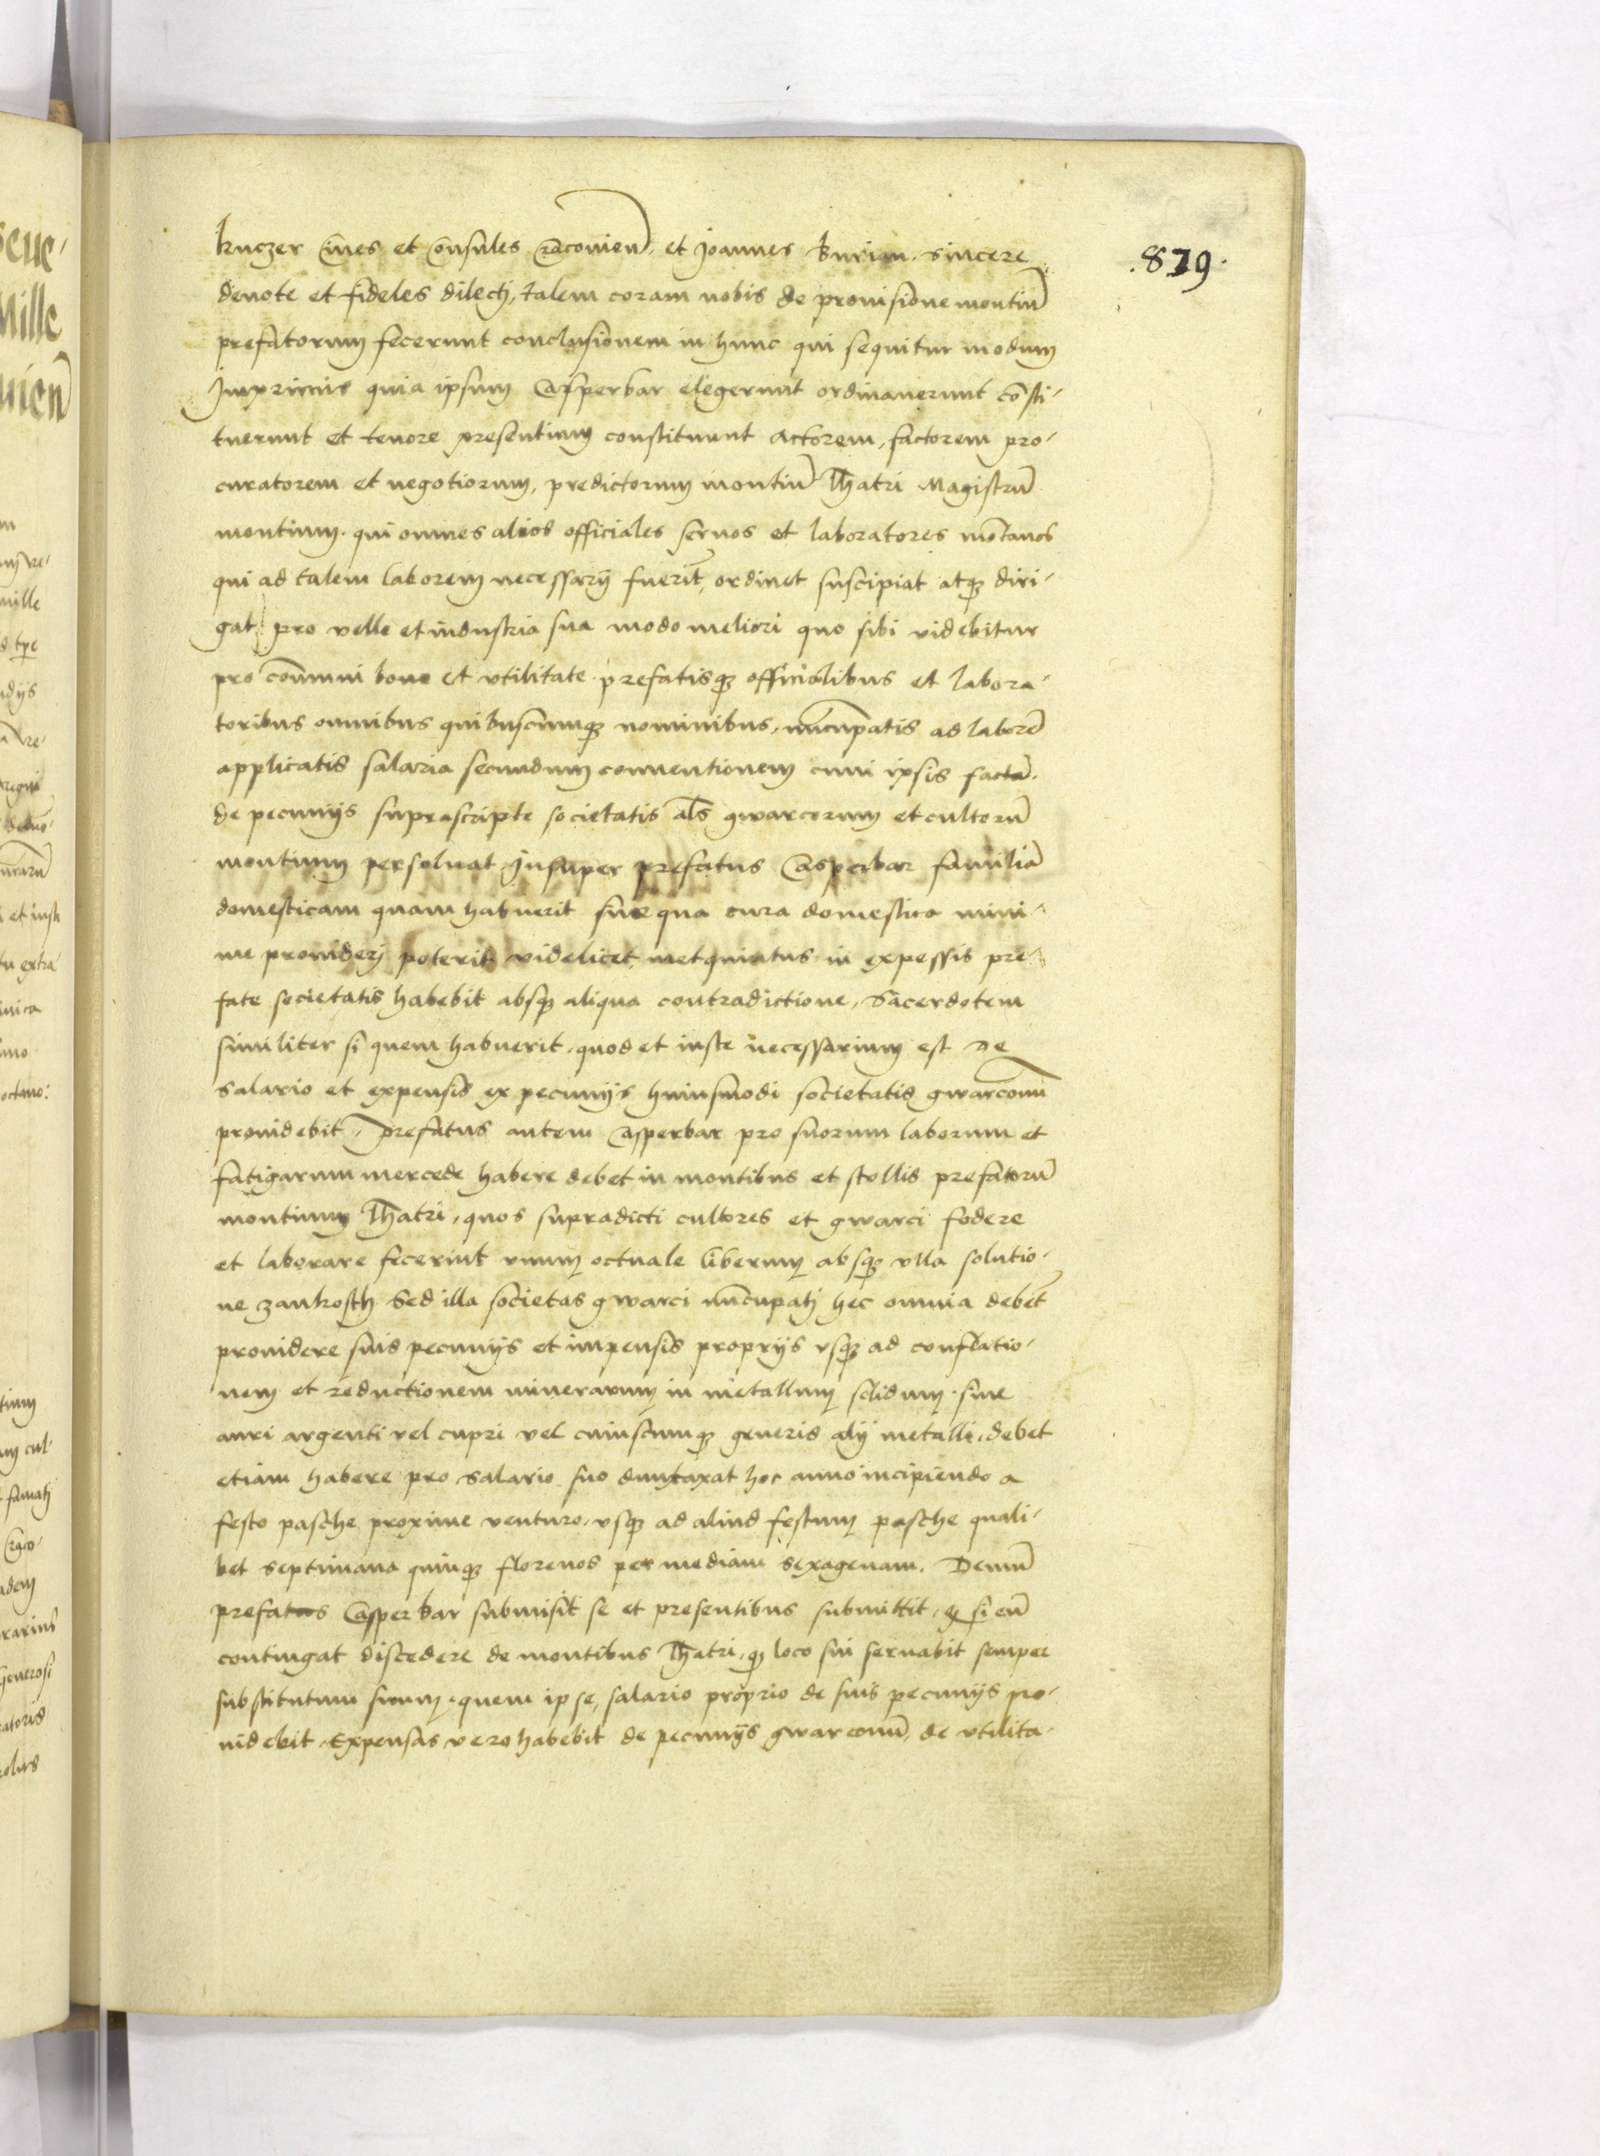 .879.
kuczer Cives et Consules Cracovien̄. et Joannes Burian. sincere
devote et fideles dilecti, talem coram nobis de provisione montiū
prefatorum fecerunt conclusionem in hunc qui sequitur modum
Inprimis quia ipsum Casperbar elegerunt ordinaverunt cōsti-
tuerunt et tenore presentium constituunt actorem, factorem pro-
curatorem et negotiorum, predictorum montiū Thatri Magistrū
montium. qui omnes alios officiales servos et laboratores mōtanos
qui ad talem laborem necessarij fuerīt, ordinet suscipiat atqꝫ diri-
gat pro velle et industria sua modo meliori quo sibi videbitur
pro cōmuni bono et utilitate. prefatisqꝫ officialibus et labora-
toribus omnibus quibuscumqꝫ nominibus, nūcupatis ad laborē
applicatis salaria secundum conventionem cum ipsis factā.
de pecunijs suprascripte societatis als gwarcorum et cultorū
montium persolvat. Insuper prefatus Casperbar familiā
domesticam quam habuerit sine qua cura domestica mini-
me provideri poterit videlicet metquintus in expessis pre-
fate societatis habebit absqꝫ aliqua contradictione, Sacerdotem
similiter si quem habuerit, quod et iuste necessarium est de
salario et expensis ex pecunijs huiusmodi societatis gwarcorum
providebit, Prefatus autem Casperbar pro suorum laborum et
fatigarum mercede habere debet in montibus et stollis prefatorū
montium Thatri, quos supradicti cultores et gwarci fodere
et laborare fecerint unum octuale liberum absqꝫ ulla solutio-
ne zankosth Sed illa societas gwarci nūcupati hec omnia debēt
providere suis pecunijs et impensis proprijs usqꝫ ad conflatio-
nem et reductionem minerarum in metallum solidum. sive
auri argenti vel cupri vel cuiuscumqꝫ generis alij metalli. debet
etiam habere pro salario suo duntaxat hoc anno incipiendo a
festo pasche proxime venturo, usqꝫ ad aliud festum pasche quali-
bet septimana quinqꝫ florenos per mediam sexagenam. Demū
prefatus Casper bar submisit se et presentibus submittit, qꝫ si eū
contingat discedere de montibus Thatri, qꝫ loco sui servabit semper
substitutum suum. quem ipse, salario proprio de suis pecunijs pro-
videbit. Expensas vero habebit de pecunijs gwarcorū, de utilita-